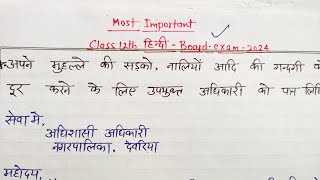 Most Important
Class 12th हिन्दी - Board-exam-2024
अपने मुहल्ले की सड़को, नालियों आदि की गन्दगी
दूर करने के लिए उपयुक्त अधिकारी को पत्र
सेवा में,
अधिशासी अधिकारी
नगरपालिका, देवरिया
महोदय,